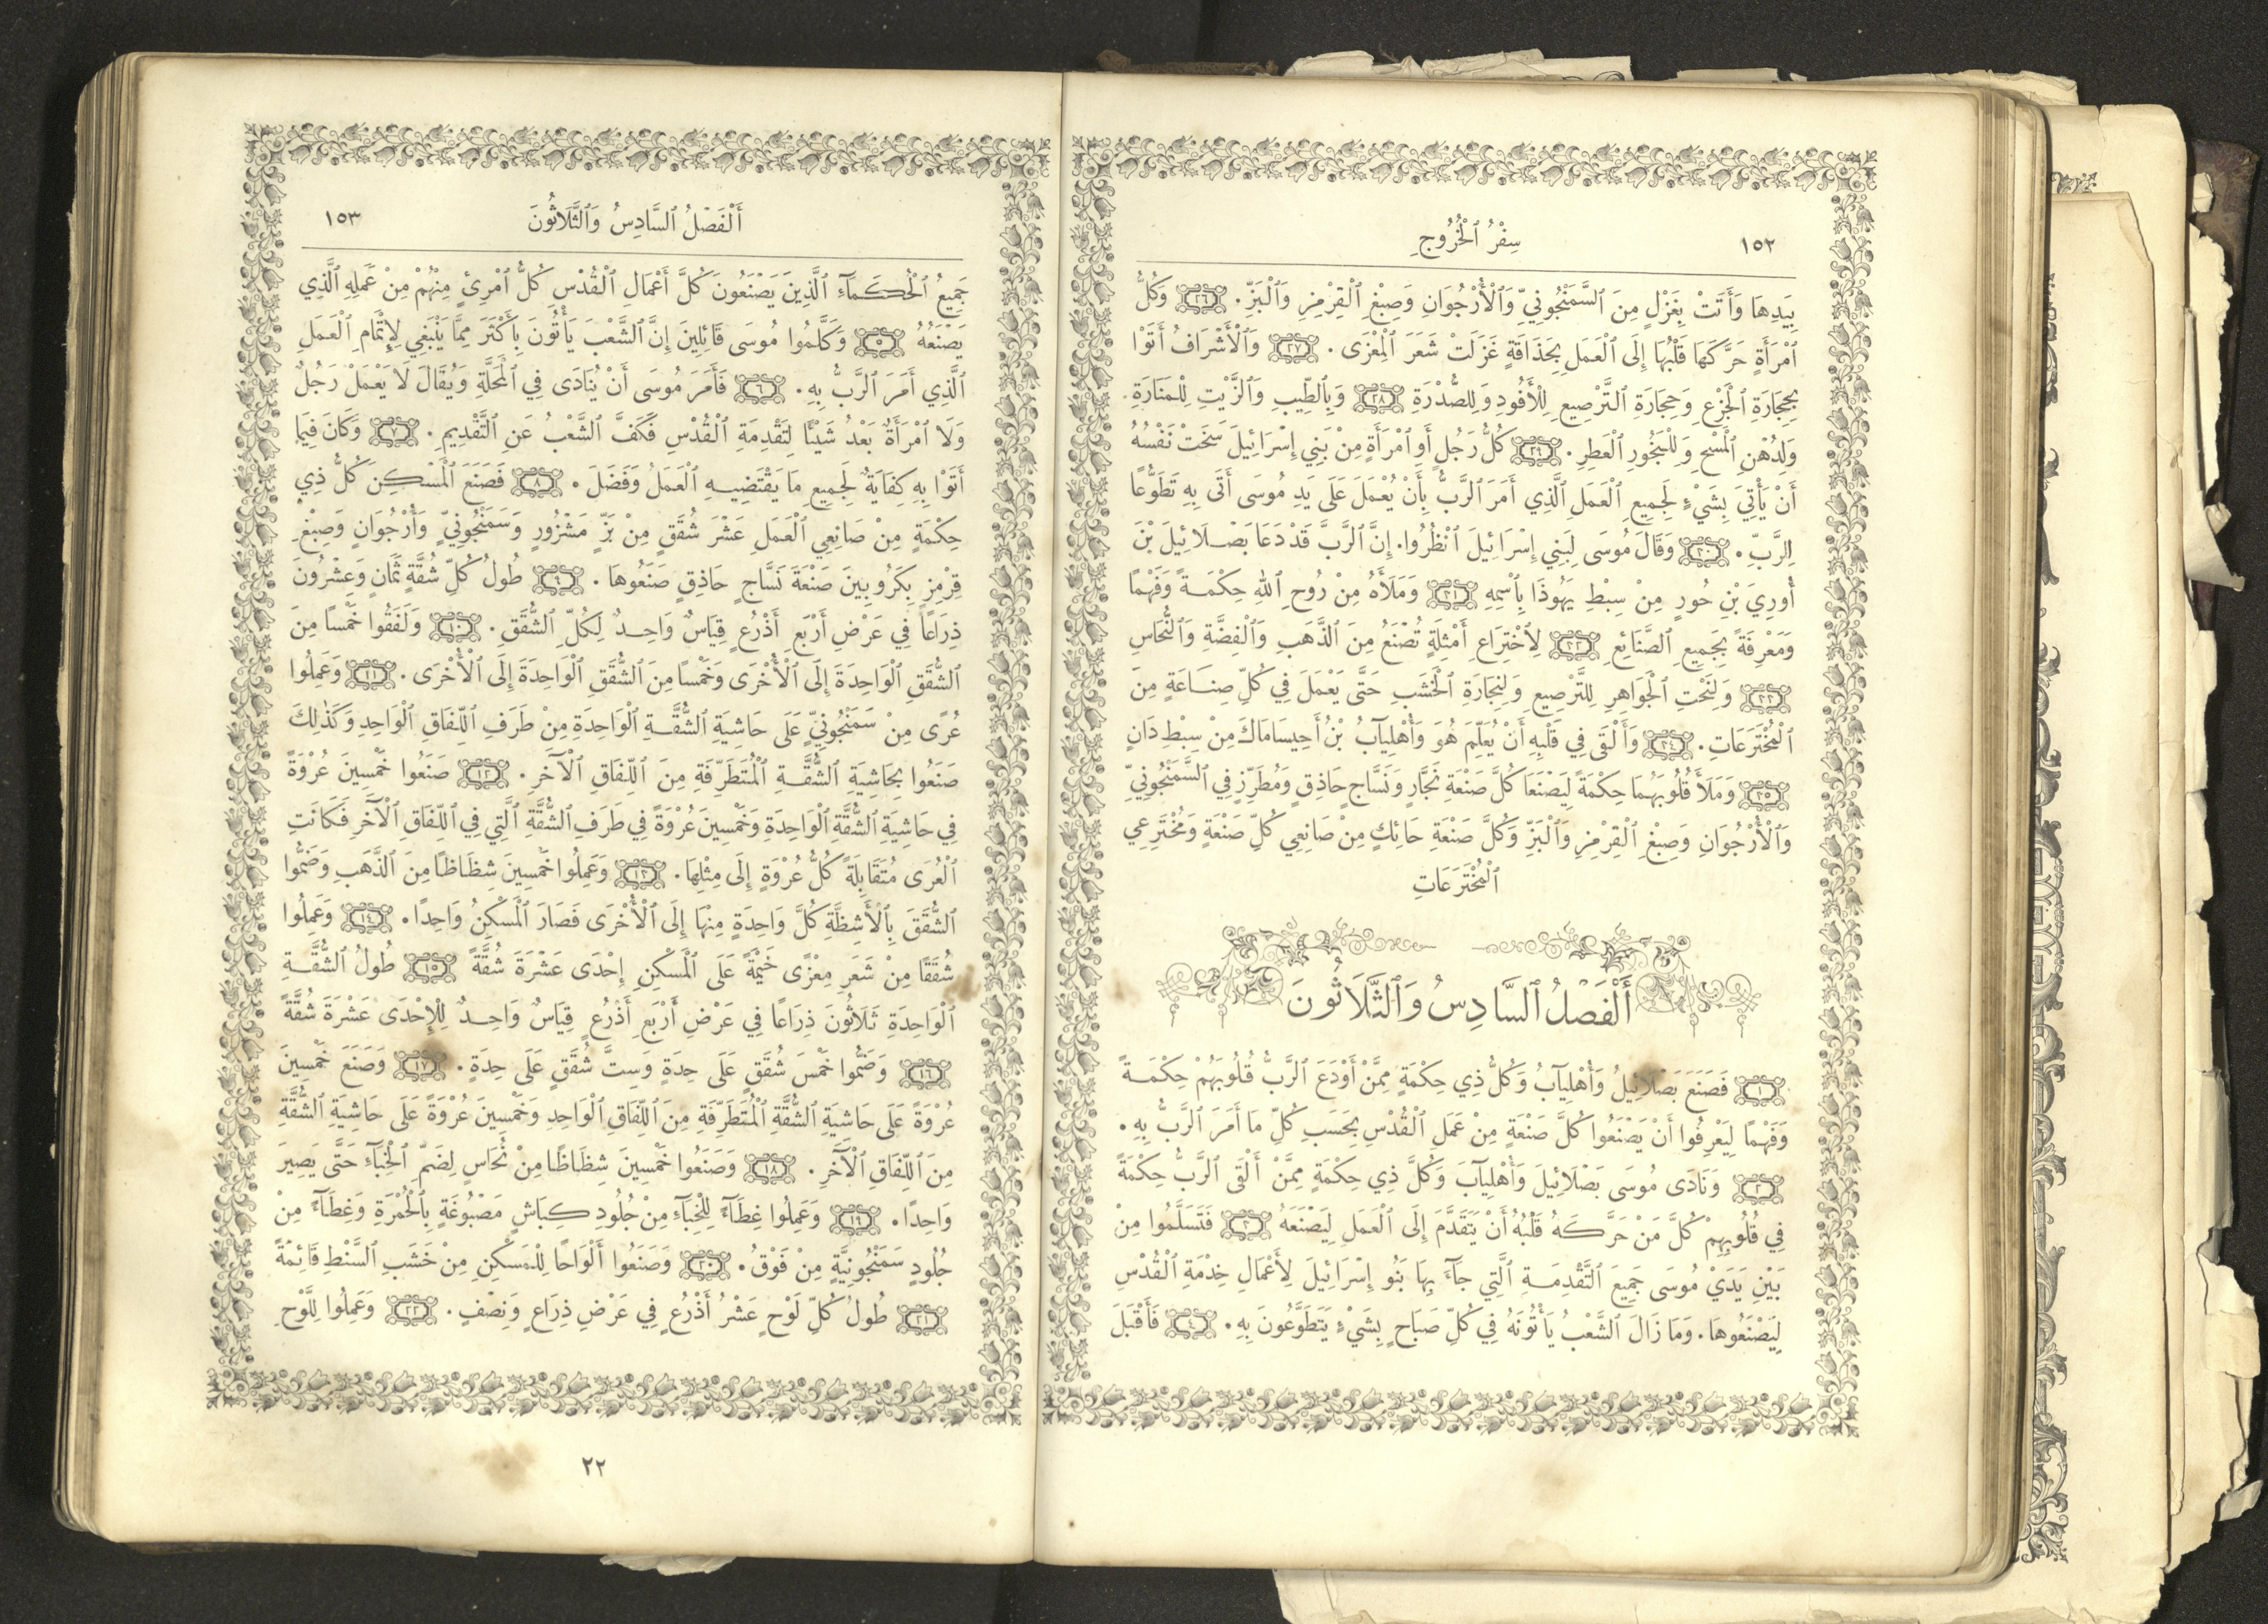 ١٥٢ سِفْرُ ٱلْخُرُوجِ
بِيَدِهَا وَأَتَتْ بِغَزْلٍ مِنَ ٱلسَّمَنْجُونِيِّ وَٱلْأُرْجُوَانِ وَصِبْغِ ٱلْقِرْمِزِ وَٱلْبَزِّ. ٢٦ وَكُلُّ
ٱمْرَأَةٍ حَرَّكَهَا قَلْبُهَا إِلَى ٱلْعَمَلِ بِحَذَاقَةٍ غَزَلَتْ شَعَرَ ٱلْمِعْزَى. ٢٧ وَٱلْأَشْرَافُ أَتَوْا
بِحِجَارَةِ ٱلْجَزْعِ وَحِجَارَةِ ٱلتَّرْصِيعِ لِلْأَفُودِ وَلِلصُّدْرَةِ ٢٨ وَبِٱلطِّيبِ وَٱلزَّيْتِ لِلْمَنَارَةِ
وَلِدُهْنِ ٱلْمَسْحِ وَلِلْبَخُورِ ٱلْعَطِرِ. ٢٩ كُلُّ رَجُلٍ أَوِ ٱمْرَأَةٍ مِنْ بَنِي إِسْرَائِيلَ سَخَتْ نَفْسُهُ
أَنْ يَأْتِيَ بِشَيْءٍ لِجَمِيعِ ٱلْعَمَلِ ٱلَّذِي أَمَرَ ٱلرَّبُّ بِأَنْ يُعْمَلَ عَلَى يَدِ مُوسَى أَتَى بِهِ تَطَوُّعًا
لِلرَّبِّ. ٣٠ وَقَالَ مُوسَى لِبَنِي إِسْرَائِيلَ ٱنْظُرُوا. إِنَّ ٱلرَّبَّ قَدْ دَعَا بَصَلَائِيلَ بْنَ
أُورِيَ بْنِ حُورٍ مِنْ سِبْطِ يَهُوذَا بِٱسْمِهِ ٣١ وَمَلَأَهُ مِنْ رُوحِ ٱللهِ حِكْمَةً وَفَهْمًا
وَمَعْرِفَةً بِجَمِيعِ ٱلصَّنَائِعِ ٣٢ لِٱخْتِرَاعِ أَمْثِلَةٍ تُصْنَعُ مِنَ ٱلذَّهَبِ وَٱلْفِضَّةِ وَٱلنُّحَاسِ
٣٣ وَلِنَحْتِ ٱلْجَوَاهِرِ لِلتَّرْصِيعِ وَلِنِجَارَةِ ٱلْخَشَبِ حَتَّى يَعْمَلَ فِي كُلِّ صِنَاعَةٍ مِنَ
ٱلْمُخْتَرَعَاتِ. ٣٤ وَأَلْقَى فِي قَلْبِهِ أَنْ يُعَلِّمَ هُوَ وَأُهْلِيآبُ بْنُ أَحِيسَامَاكَ مِنْ سِبْطِ دَانٍ
٣٥ وَمَلَأَ قُلُوبَهُمَا حِكْمَةً لِيَصْنَعَا كُلَّ صَنْعَةِ نَجَّارٍ وَنَسَّاجٍ حَاذِقٍ وَمُطَرِّزٍ فِي ٱلسَّمَنْجُونِيِّ
وَٱلْأُرْجُوَانِ وَصِبْغِ ٱلْقِرْمِزِ وَٱلْبَزِّ وَكُلَّ صَنْعَةِ حَائِكٍ مِنْ صَانِعِي كُلِّ صَنْعَةٍ وَمُخْتَرِعِي
ٱلْمُخْتَرَعَاتِ
أَلْفَصْلُ ٱلسَّادِسُ وَٱلثَّلَاثُونَ
١ فَصَنَعَ بَصَلَائِيلُ وَأُهْلِيآبُ وَكُلُّ ذِي حِكْمَةٍ مِمَّنْ أَوْدَعَ ٱلرَّبُّ قُلُوبَهُمْ حِكْمَةً
وَفَهْمًا لِيَعْرِفُوا أَنْ يَصْنَعُوا كُلَّ صَنْعَةٍ مِنْ عَمَلِ ٱلْقُدْسِ بِحَسَبِ كُلِّ مَا أَمَرَ ٱلرَّبُّ بِهِ.
٢ وَنَادَى مُوسَى بَصَلَائِيلَ وَأُهْلِيآبَ وَكُلَّ ذِي حِكْمَةٍ مِمَّنْ أَلْقَى ٱلرَّبُّ حِكْمَةً
فِي قُلُوبِهِمْ كُلَّ مَنْ حَرَّكَهُ قَلْبُهُ أَنْ يَتَقَدَّمَ إِلَى ٱلْعَمَلِ لِيَصْنَعَهُ ٣ فَتَسَلَّمُوا مِنْ
بَيْنِ يَدَيْ مُوسَى جَمِيعَ ٱلتَّقْدِمَةِ ٱلَّتِي جَآءَ بِهَا بَنُو إِسْرَائِيلَ لِأَعْمَالِ خِدْمَةِ ٱلْقُدْسِ
لِيَصْنَعُوهَا. وَمَا زَالَ ٱلشَّعْبُ يَأْتُونَهُ فِي كُلِّ صَبَاحٍ بِشَيْءٍ يَتَطَوَّعُونَ بِهِ. ٤ فَأَقْبَلَ
أَلْفَصْلُ ٱلسَّادِسُ وَٱلثَّلَاثُونَ ١٥٣
جَمِيعُ ٱلْحُكَمَآءِ ٱلَّذِينَ يَصْنَعُونَ كُلَّ أَعْمَالِ ٱلْقُدْسِ كُلُّ ٱمْرِئٍ مِنْهُمْ مِنْ عَمَلِهِ ٱلَّذِي
يَصْنَعُهُ ٥ وَكَلَّمُوا مُوسَى قَائِلِينَ إِنَّ ٱلشَّعْبَ يَأْتُونَ بِأَكْثَرَ مِمَّا يَنْبَغِي لِإِتْمَامِ ٱلْعَمَلِ
ٱلَّذِي أَمَرَ ٱلرَّبُّ بِهِ. ٦ فَأَمَرَ مُوسَى أَنْ يُنَادَى فِي ٱلْمَحَلَّةِ وَيُقَالَ لَا يَعْمَلْ رَجُلٌ
وَلَا ٱمْرَأَةٌ بَعْدُ شَيْئًا لِتَقْدِمَةِ ٱلْقُدْسِ فَكَفَّ ٱلشَّعْبُ عَنِ ٱلتَّقْدِيمِ. ٧ وَكَانَ فِيمَا
أَتَوْا بِهِ كِفَايَةٌ لِجَمِيعِ مَا يَقْتَضِيهِ ٱلْعَمَلُ وَفَضَلَ. ٨ فَصَنَعَ ٱلْمَسْكِنَ كُلُّ ذِي
حِكْمَةٍ مِنْ صَانِعِي ٱلْعَمَلِ عَشْرَ شُقَقٍ مِنْ بَزٍّ مَشْزُورٍ وَسَمَنْجُونِيٍّ وَأُرْجُوَانٍ وَصِبْغِ
قِرْمِزٍ بِكَرُوبِينَ صَنْعَةَ نَسَّاجٍ حَاذِقٍ صَنَعُوهَا. ٩ طُولُ كُلِّ شُقَّةٍ ثَمَانٍ وَعِشْرُونَ
ذِرَاعًا فِي عَرْضِ أَرْبَعِ أَذْرُعٍ قِيَاسٌ وَاحِدٌ لِكُلِّ ٱلشُّقَقِ. ١٠ وَلَفَقُوا خَمْسًا مِنَ
ٱلشُّقَقِ ٱلْوَاحِدَةَ إِلَى ٱلْأُخْرَى وَخَمْسًا مِنَ ٱلشُّقَقِ ٱلْوَاحِدَةَ إِلَى ٱلْأُخْرَى. ١١ وَعَمِلُوا
عُرًى مِنْ سَمَنْجُونِيٍّ عَلَى حَاشِيَةِ ٱلشُّقَّةِ ٱلْوَاحِدَةِ مِنْ طَرَفِ ٱللِّفَاقِ ٱلْوَاحِدِ وَكَذٰلِكَ
صَنَعُوا بِحَاشِيَةِ ٱلشُّقَّةِ ٱلْمُتَطَرِّفَةِ مِنَ ٱللِّفَاقِ ٱلْآخَرِ. ١٢ صَنَعُوا خَمْسِينَ عُرْوَةً
فِي حَاشِيَةِ ٱلشُّقَّةِ ٱلْوَاحِدَةِ وَخَمْسِينَ عُرْوَةً فِي طَرَفِ ٱلشُّقَّةِ ٱلَّتِي فِي ٱللِّفَاقِ ٱلْآخَرِ فَكَانَتِ
ٱلْعُرَى مُتَقَابِلَةً كُلُّ عُرْوَةٍ إِلَى مِثْلِهَا. ١٣ وَعَمِلُوا خَمْسِينَ شِظَاظًا مِنَ ٱلذَّهَبِ وَضَمُّوا
ٱلشُّقَقَ بِٱلْأَشِظَّةِ كُلَّ وَاحِدَةٍ مِنْهَا إِلَى ٱلْأُخْرَى فَصَارَ ٱلْمَسْكِنُ وَاحِدًا. ١٤ وَعَمِلُوا
شُقَقًا مِنْ شَعَرِ مِعْزًى خَيْمَةً عَلَى ٱلْمَسْكِنِ إِحْدَى عَشْرَةَ شُقَّةً ١٥ طُولُ ٱلشُّقَّةِ
ٱلْوَاحِدَةِ ثَلَاثُونَ ذِرَاعًا فِي عَرْضِ أَرْبَعِ أَذْرُعٍ قِيَاسٌ وَاحِدٌ لِلْإِحْدَى عَشْرَةَ شُقَّةً
١٦ وَضَمُّوا خَمْسَ شُقَقٍ عَلَى حِدَةٍ وَسِتَّ شُقَقٍ عَلَى حِدَةٍ. ١٧ وَصَنَعَ خَمْسِينَ
عُرْوَةً عَلَى حَاشِيَةِ ٱلشُّقَّةِ ٱلْمُتَطَرِّفَةِ مِنَ ٱللِّفَاقِ ٱلْوَاحِدِ وَخَمْسِينَ عُرْوَةً عَلَى حَاشِيَةِ ٱلشُّقَّةِ
مِنَ ٱللِّفَاقِ ٱلْآخَرِ. ١٨ وَصَنَعُوا خَمْسِينَ شِظَاظًا مِنْ نُحَاسٍ لِضَمِّ ٱلْخِبَآءِ حَتَّى يَصِيرَ
وَاحِدًا. ١٩ وَعَمِلُوا غِطَآءً لِلْخِبَآءِ مِنْ جُلُودِ كِبَاشٍ مَصْبُوغَةٍ بِٱلْحُمْرَةِ وَغِطَآءً مِنْ
جُلُودٍ سَمَنْجُونِيَّةٍ مِنْ فَوْقُ. ٢٠ وَصَنَعُوا أَلْوَاحًا لِلْمَسْكِنِ مِنْ خَشَبِ ٱلسَّنْطِ قَائِمَةً
٢١ طُولُ كُلِّ لَوْحٍ عَشْرُ أَذْرُعٍ فِي عَرْضِ ذِرَاعٍ وَنِصْفٍ. ٢٢ وَعَمِلُوا لِلَّوْحِ
٢٢